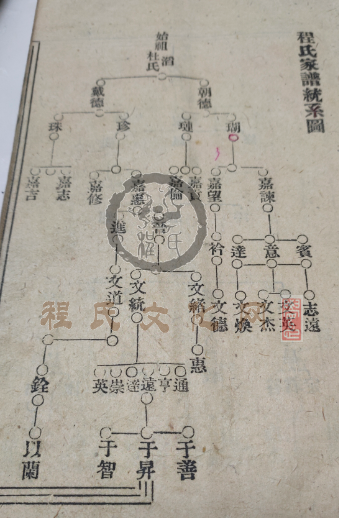 程氏家譜統系圖
始祖 滔
杜氏
朝德
戴德
瑚
璉
珍
珠
嘉諫
嘉望
嘉賓
嘉倫
嘉憲
嘉修
嘉志
嘉言
賓
意
達
衿
善
進
志遠
文英
文杰
文煥
文德
文緒
文統
文道
惠
通
亨
遠
達
崇
英
銓
于善
于昇
于智
以蘭
程氏文化网